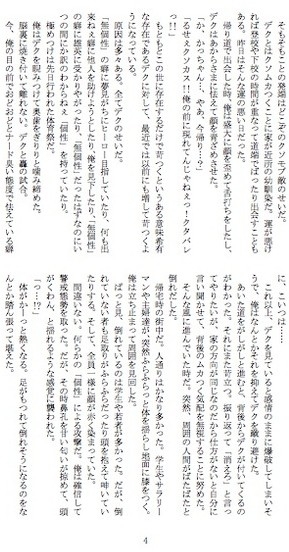 そもそもことの発端はどこぞのクソモブ敵のせいだ。
デクとはクソムカつくことに家が近所の幼馴染だ。運が悪け
れば登校や下校の時間が重なって道端でばったり出会すことも
ある。昨日はそんな運の悪い日だった。
帰り道で出会した時、俺は盛大に顔を歪めて舌打ちをしたし、
デクはあからさまに怯えて顔を青ざめさせた。
「か、かっちゃん…、やあ、今帰り…？」
「るせえクソカス!!俺の前に現れてんじゃねぇっ！クタバレ
っ!!」
もともとこの世に存在するだけで苛つくというある意味希有
な存在であるデクに対して、最近では以前にも増して苛つくよ
うになっている。
原因は多々ある。全てデクのせいだ。
「無個性」の癖に夢見がちにヒーロー目指していたり、何も出
来ねぇ癖に他人を助けようとしたり、俺を見下したり、「無個性」
の癖に雄英に受かりやがったり、「無個性」だったはずなのにい
つの間にか訳のわからねぇ「個性」を持っていたり。
極めつけは先日行われた体育祭だ。
俺はデクを睨みつけて奥歯をぎりりと噛み締めた。
脳裏に焼き付いて離れない、デクと轟の試合。
今、俺の目の前でおどおどとナード臭い態度で怯えている癖
に、こいつは……
これ以上、デクを見ていると感情のままに爆破してしまいそ
うで、俺はなんとかそれを抑えてデクを織り避けた。
あいた道をがしがしと進むと、背後からデクが付いてくるの
がわかった。それにまた苛立つ。振り返って「消えろ」と言っ
てやりたいが、家の方向が同じなのだから仕方がないと自分に
言い聞かせて、背後のムカつく気配を無視することに努めた。
そんな風に進んでいた時だ。突然、周囲の人間がばたばたと
倒れだした。
帰宅時の街中だ。人通りはかなり多かった。学生やサラリー
マンや主婦達が、突然ふらふらっと体を揺らし地面に膝をつく。
俺は立ち止まって周囲を見回した。
ぱっと見、倒れているのは学生や若者が多かった。だが、倒
れていない者も足取りがふらふらだったり頭を抱えて呻いてい
たりする。そして、全員一様に顔が赤く染まっていた。
間違いない、何らかの「個性」による攻撃だ。俺は確信して
警戒態勢を取った。だが、その時鼻孔を甘い匂いが掠めて、頭
がくわん、と揺れるような感覚に襲われた。
「っ…!?」
体がかーっと熱くなる。足がもつれて倒れそうになるのをな
んとか踏ん張って堪えた。
4